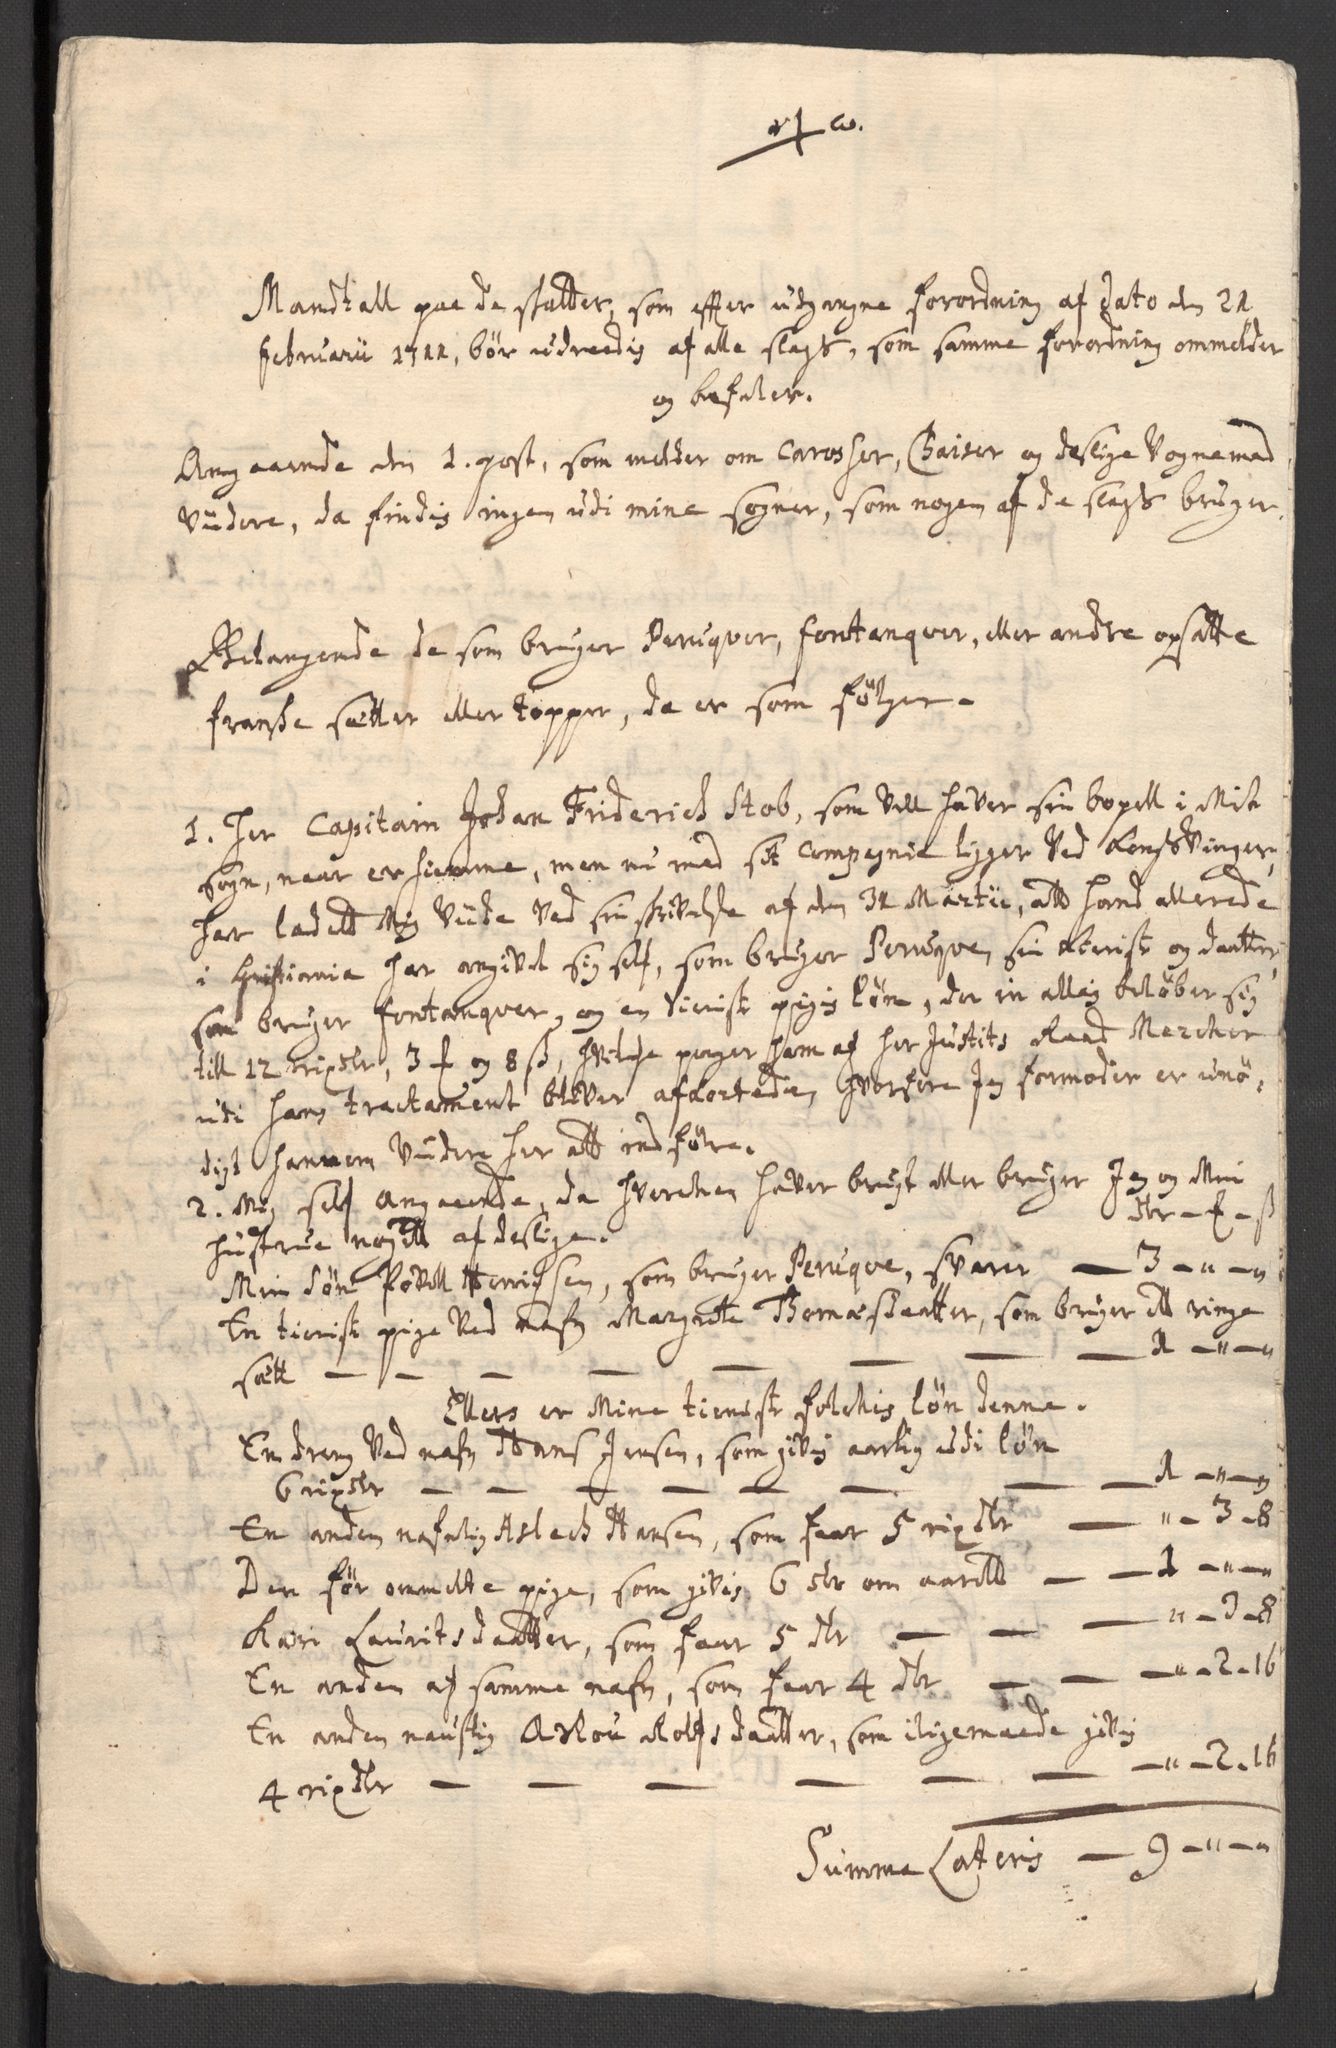 Mandtall paa de skatter, som effter udgangne forordning af dato den 21
februarii 1711, bör udreedis af alle slags, som samme forordning ommelder
og befaler.
Angaaende den 1. post, som melder om Carosser, Chaiser og deslige Vogne med
Viidere, da findis ingen udi mine sogner, som nogen af de slags bruger.
Belangende de som bruger Peruqver, fontanqver, eller andre opsatte
franske sætter eller topper, da er som fölger.
1. Her Capitain Johan Friderich Stob, som Vell haver sin bopell i Mit
sogn, naar er hiemme, men nu med sit Compagnie ligger Ved Kongsvinger,
har ladett Mig Viide Ved sin skrivelse af den 31 Martii, att hand allerede
i Christiania har angivet sig self, som bruger Peruqve, sin kierist og daatter,
som bruger fontanqver, og en tienist pigis lön, der in alles belöber sig
till 12 rixdlr, 3 £ og 8 ß, hvilche penger ham af her Justits Raad Mercher
udi hans tractament bliver afkortede, hvorfore Jeg formoder er unö¬
digt hannem Viidere her att indföre.
2. Mig self angaaende, da hverchen haver brugt eller bruger Jeg og Min
hustrue nogett af deslige. dlr - £ - ß
Min Sön Povell Henrichsen, som bruger Peruqve, svarer — 3 - " - "
En tienist pige Ved nafn Margrete Thomæsdaatter, som bruger ett ringe
sætt — — — — — — — 1 - " - "
Ellers er Mine tienist folchis lön denne.
En dreng Ved nafn Hans Jensen, som givis aarlig udi lön
6 rixdlr — — — — — — — — 1 - " - "
En anden nafnlig Aslech Hansen, som faar 5 rixdlr — " - 3 - 8
Den för ommelte pige, som givis 6 dlr om aarett — — 1 - " - "
Kari Lauritsdaatter, som faar 5 dlr — — — " - 3 - 8
En anden af samme nafn, som faar 4 dlr — — — " - 2 - 16
En anden naunlig Aslou Rolfsdaatter, som iligemaade givis
4 rixdlr — — — — — — — " - 2 - 16
Summa Lateris — 9 - " - "